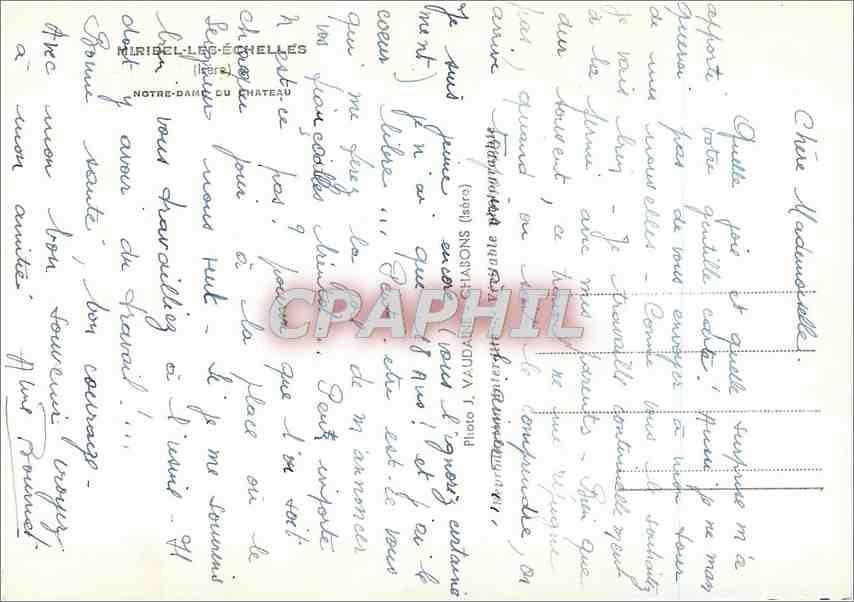 MIRIBEL-LES-ÉCHELLES
(Isère)
NOTRE-DAME DU CHATEAU
Photo J. VAUDAINE CHABONS (Isère)
CPAPHIL
Chère Mademoiselle.
Quelle joie et quelle surprise m'a
apporté votre gentille carte! Aussi je ne man
querai pas de vous envoyer à mon tour
de mes nouvelles - Comme vous le souhaitez
je vais bien - Je travaille continuellement
à la ferme avec mes parents - Bien que
dur souvent, ce travail ne me répugne
pas, quand on sait le comprendre, on
arrive
Je suis jeune encore (vous l'ignorez certaine
ment) je n'ai que 18 Ans! et j'ai le
coeur libre... Peut-être est-ce vous
qui me ferez la de m'annoncer
vos fiançailles bientôt... Peu importe
n'est-ce pas? pourvu que l'on soit
chaque jour à la place où le
Seigneur nous veut - Si je me souviens
bien vous travailliez à l'usine - Il
doit y avoir du travail!...
Bonne santé, bon courage -
Avec mon bon souvenir croyez
à mon amitié